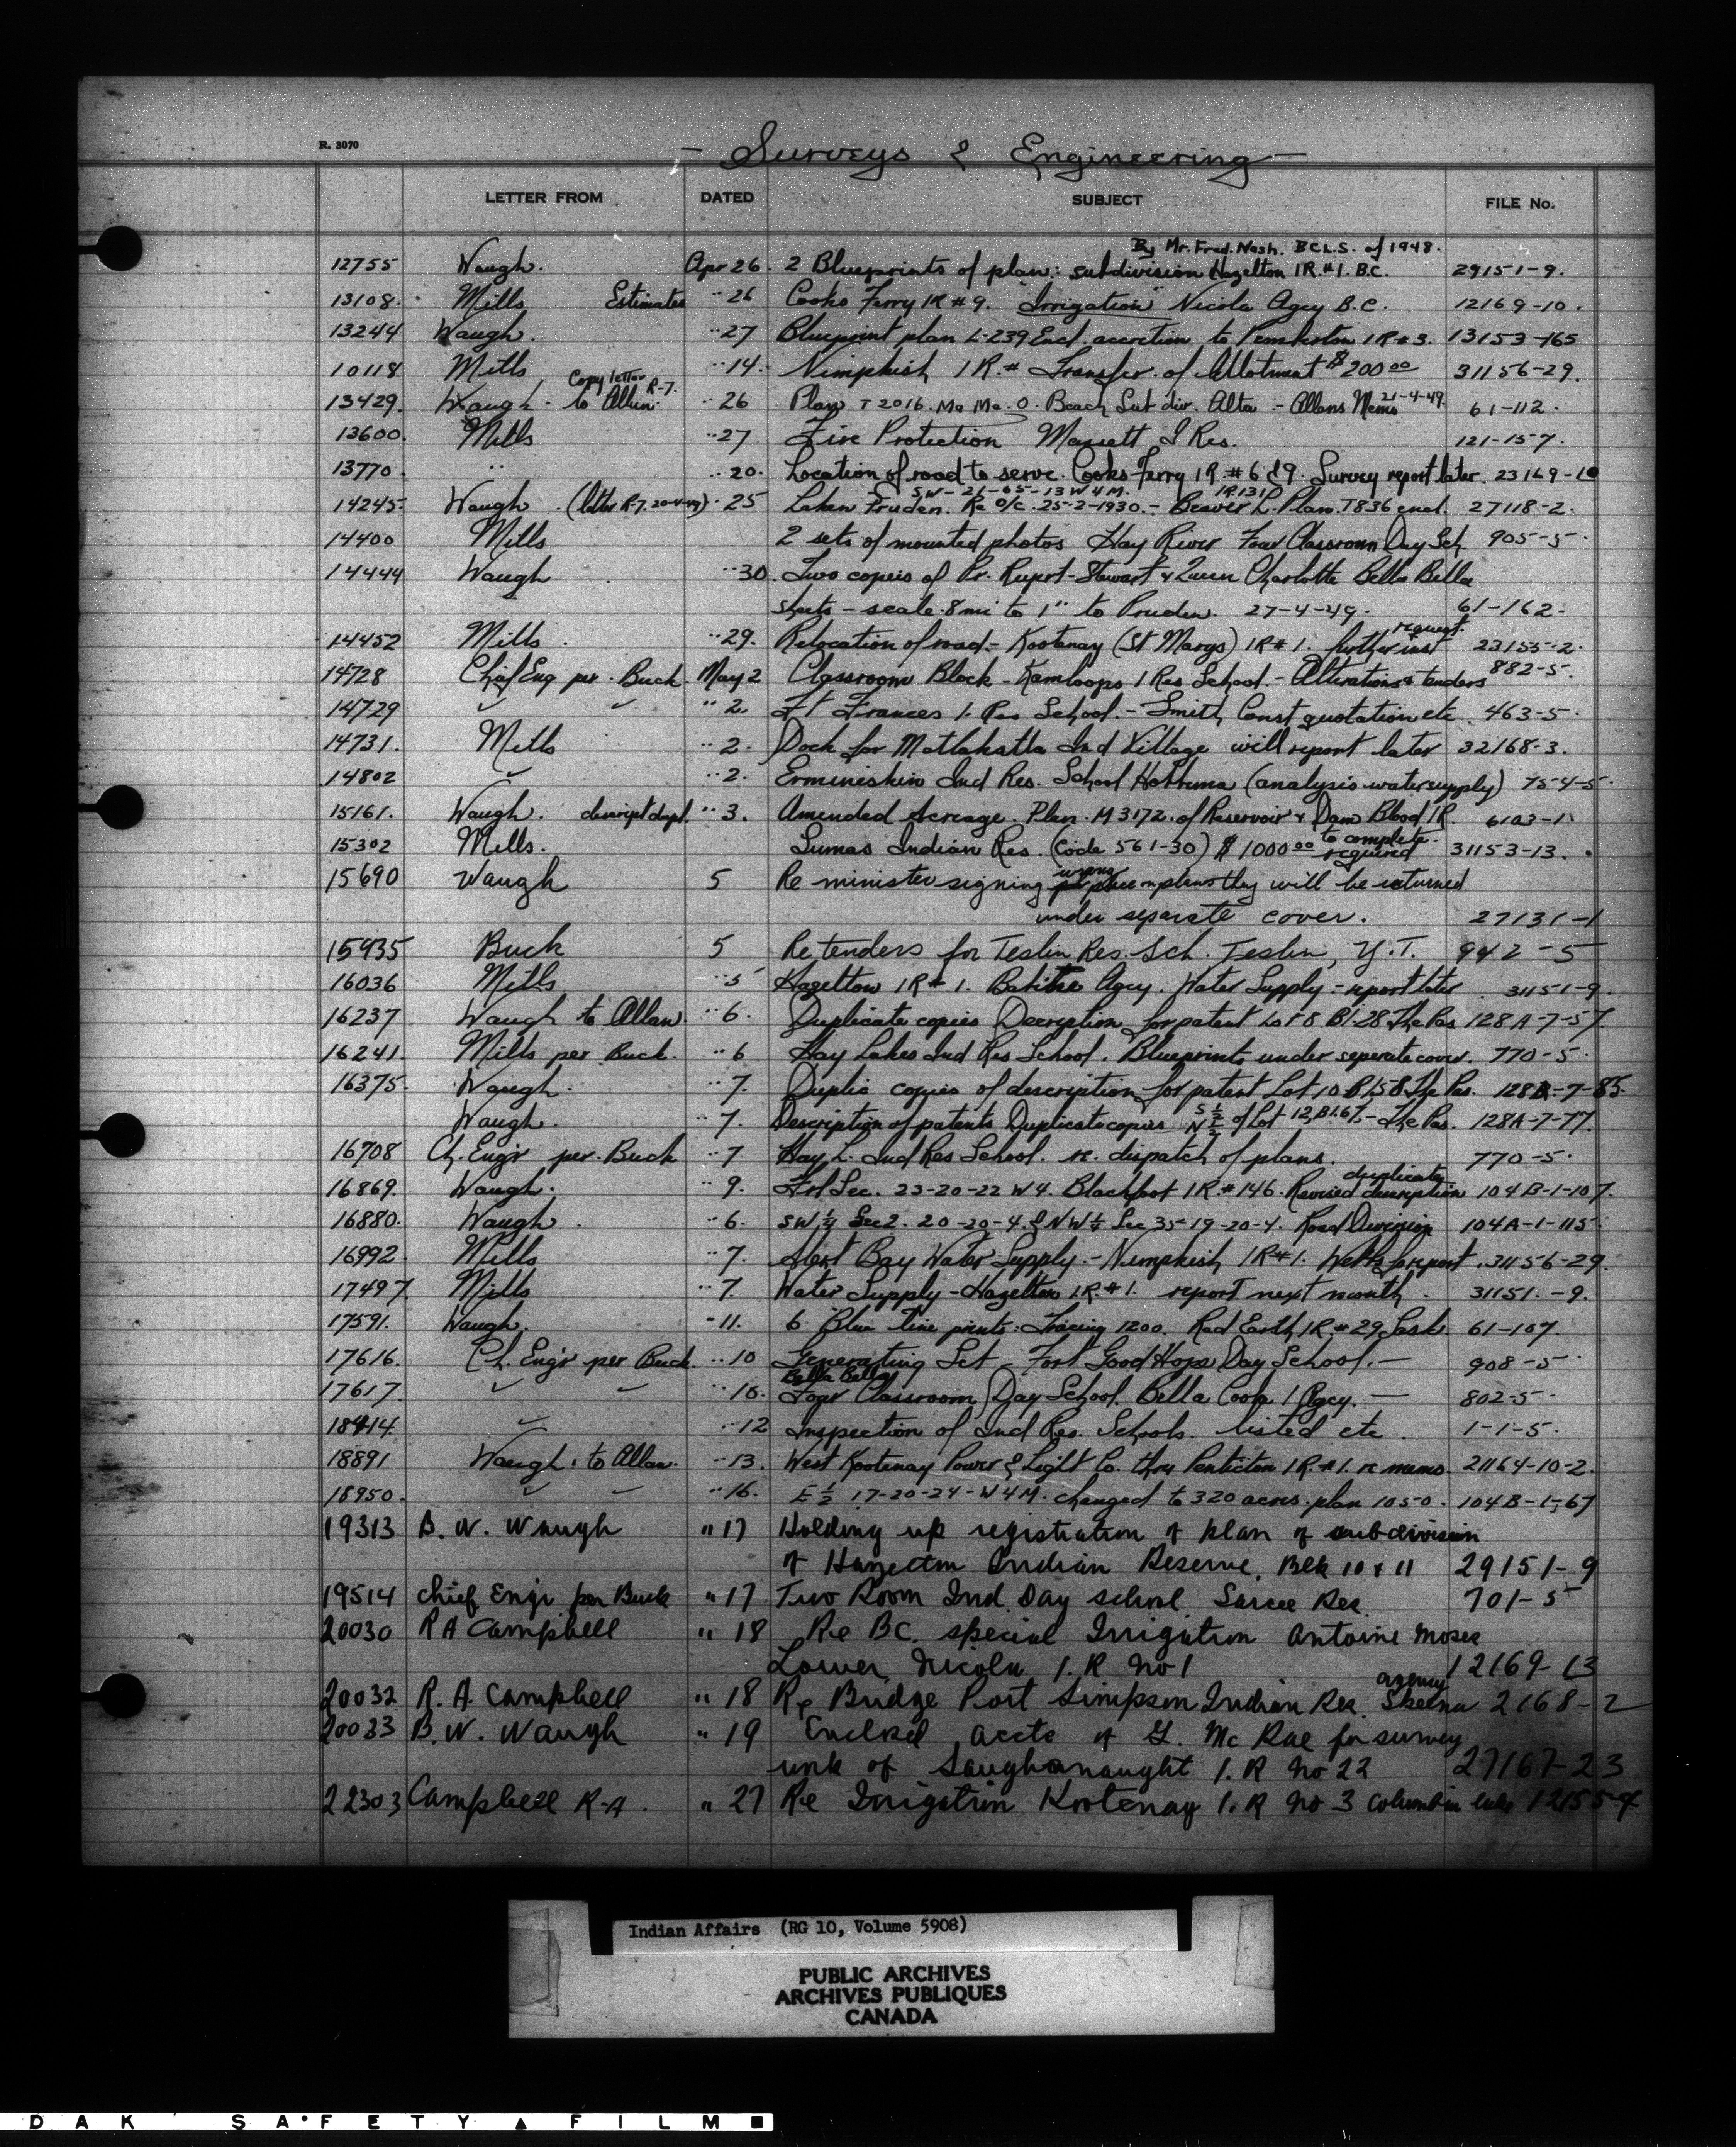 R. 3070
- Surveys & Engineering -
LETTER FROM DATED SUBJECT FILE No.
By Mr. Fred. Nash. B.C.L.S. of 1948.
12755 Waugh. Apr 26. 2 Blueprints of plan: subdivision Hazelton IR.#1. B.C. 29151-9.
13108. Mills Estimates " 26 Cooks Ferry IR #9. "Irrigation" Nicola Agcy B.C. 12169-10.
13244 Waugh. " 27 Blueprint plan L-239 Encl. accretion to Pemberton IR #3. 13153-165
10118 Mills " 14. Nimpkish IR.# Transfer of Allotment $200 00 31156-29.
13429. Waugh - Copy letter to Allan. R-7. " 26 Plan T 2016. Ma Me O Beach Sub div. Alta. - Allans Memo 21-4-49. 61-112.
13600. Mills " 27 Fire Protection Massett I Res. 121-15-7.
13770. " " 20. Location of road to serve Cooks Ferry IR #6 & 9. Survey report later. 23169-10
SW-21-65-13 W4M. IR 131
14245. Waugh (letter R-7. 20-4-49) " 25 Pruden. Re O/C. 25-2-1930. - Beaver L. Plan. T836 encl. 27118-2.
14400 Mills 2 sets of mounted photos Hay River Four Classroom Day Sch 905-5.
14444 Waugh " 30. Two copies of Pr. Rupert-Stewart & Queen Charlotte Bella Bella
sheets - scale 8 mi to 1" to Pruden. 27-4-49. 61-162.
14452 Mills. " 29. Relocation of road - Kootenay (St Marys) IR #1. further inst request. 23155-2.
14728 Chief Eng per. Buck May 2 Classroom Block - Kamloops I Res School. - Alterations & tenders 882-5.
14729 " 2. Ft Frances I. Res School. - Smith Const quotation etc. 463-5.
14731. Mills " 2. Dock for Matlakatla Ind Village will report later 32168-3.
14802 " 2. Ermineskin Ind Res. School Hobbema (analysis water supply) 754-5.
15161. Waugh. descript dupl. " 3. Amended Acreage. Plan. M 3172. of Reservoir & Dam Blood IR. 6103-1
15302 Mills. Sumas Indian Res. (Code 561-30) $1000 00 to complete. required 31153-13.
15690 Waugh 5 Re minister signing wrong place on plans they will be returned
under separate cover. 27131-1
15935 Buck 5 Re tenders for Teslin Res. Sch. Teslin, Y.T. 942-5
16036 Mills " 5 Hazelton IR #1. Babine Agcy. Water Supply - report later. 31151-9.
16237 Waugh to Allan. " 6. Duplicate copies Decription for patent Lot 8 Bl-28 The Pas 128A-7-57.
16241. Mills per Buck. " 6 Hay Lakes Ind Res School. Blueprints under seperate cover. 770-5.
16375. Waugh. " 7. Duplic copies of description for patent Lot 10 Bl 58 The Pas. 128A-7-85.
Waugh. " 7. Description of patents Duplicate copies S ½ N ½ of Lot 12, Bl.67, - The Pas. 128A-7-77.
16708 Ch. Engr per. Buck " 7 Hay L. Ind Res School. re. dispatch of plans. 770-5.
16869. Waugh. " 9. Frl Sec. 23-20-22 W4. Blackfoot IR #146. Revised duplicate description 104B-1-107.
16880. Waugh. " 6. SW ¼ Sec 2. 20-20-4. & NW ¼ Sec 35-19-20-4. Road Diversion 104A-1-115
16992 Mills " 7. Alert Bay Water Supply. - Nimpkish IR #1. Wells report. 31156-29.
17497 Mills " 7. Water Supply - Hazelton I.R. #1. report next month. 31151.-9.
17591. Waugh. " 11. 6 Blue line prints: Tracing 1200. Red Earth IR #29 Sask. 61-107.
17616. Ch. Engr per Buck. " 10 Generating Set - Fort Good Hope Day School. - 908-5
17617. " 10. Bella Bella Four Classroom Day School. Bella Coola I Agcy. - 802-5.
18414. " 12 Inspection of Ind Res. Schools. listed etc. 1-1-5.
18891 Waugh. to Allan. " 13. West Kootenay Power & Light Co. thru Penticton IR.#1. re memo. 21164-10-2.
18950. " 16. E ½ 17-20-24-W4M. changed to 320 acres. plan 1050. 104B-1-67
19313 B. W. Waugh " 17 Holding up registration of plan of subdivision
of Hazelton Indian Reserve. Blk 10 & 11 29151-9
19514 Chief Engr per Buck " 17 Two Room Ind. Day school. Sarcee Res. 701-5
20030 R A Campbell " 18 Re BC. special Irrigation Antoine Moses
Lower Nicola I.R No 1 12169-13
20032 R. A. Campbell " 18 Re Bridge Port Simpson Indian Res. Skeena agency 2168-2
20033 B. W. Waugh " 19 Enclosed accts of G. Mc Rae for survey
work of I.R No 22 27167-23
22303 Campbell R-A. " 27 Re Irrigation Kootenay I.R No 3 Columbia Lake 12155-4
Indian Affairs (RG 10, Volume 5908)
PUBLIC ARCHIVES
ARCHIVES PUBLIQUES
CANADA
DAK SAFETY ▲ FILM ■